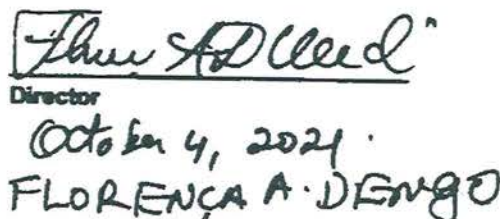 Director
October 4, 2021.
FLORENÇA A. DENGO